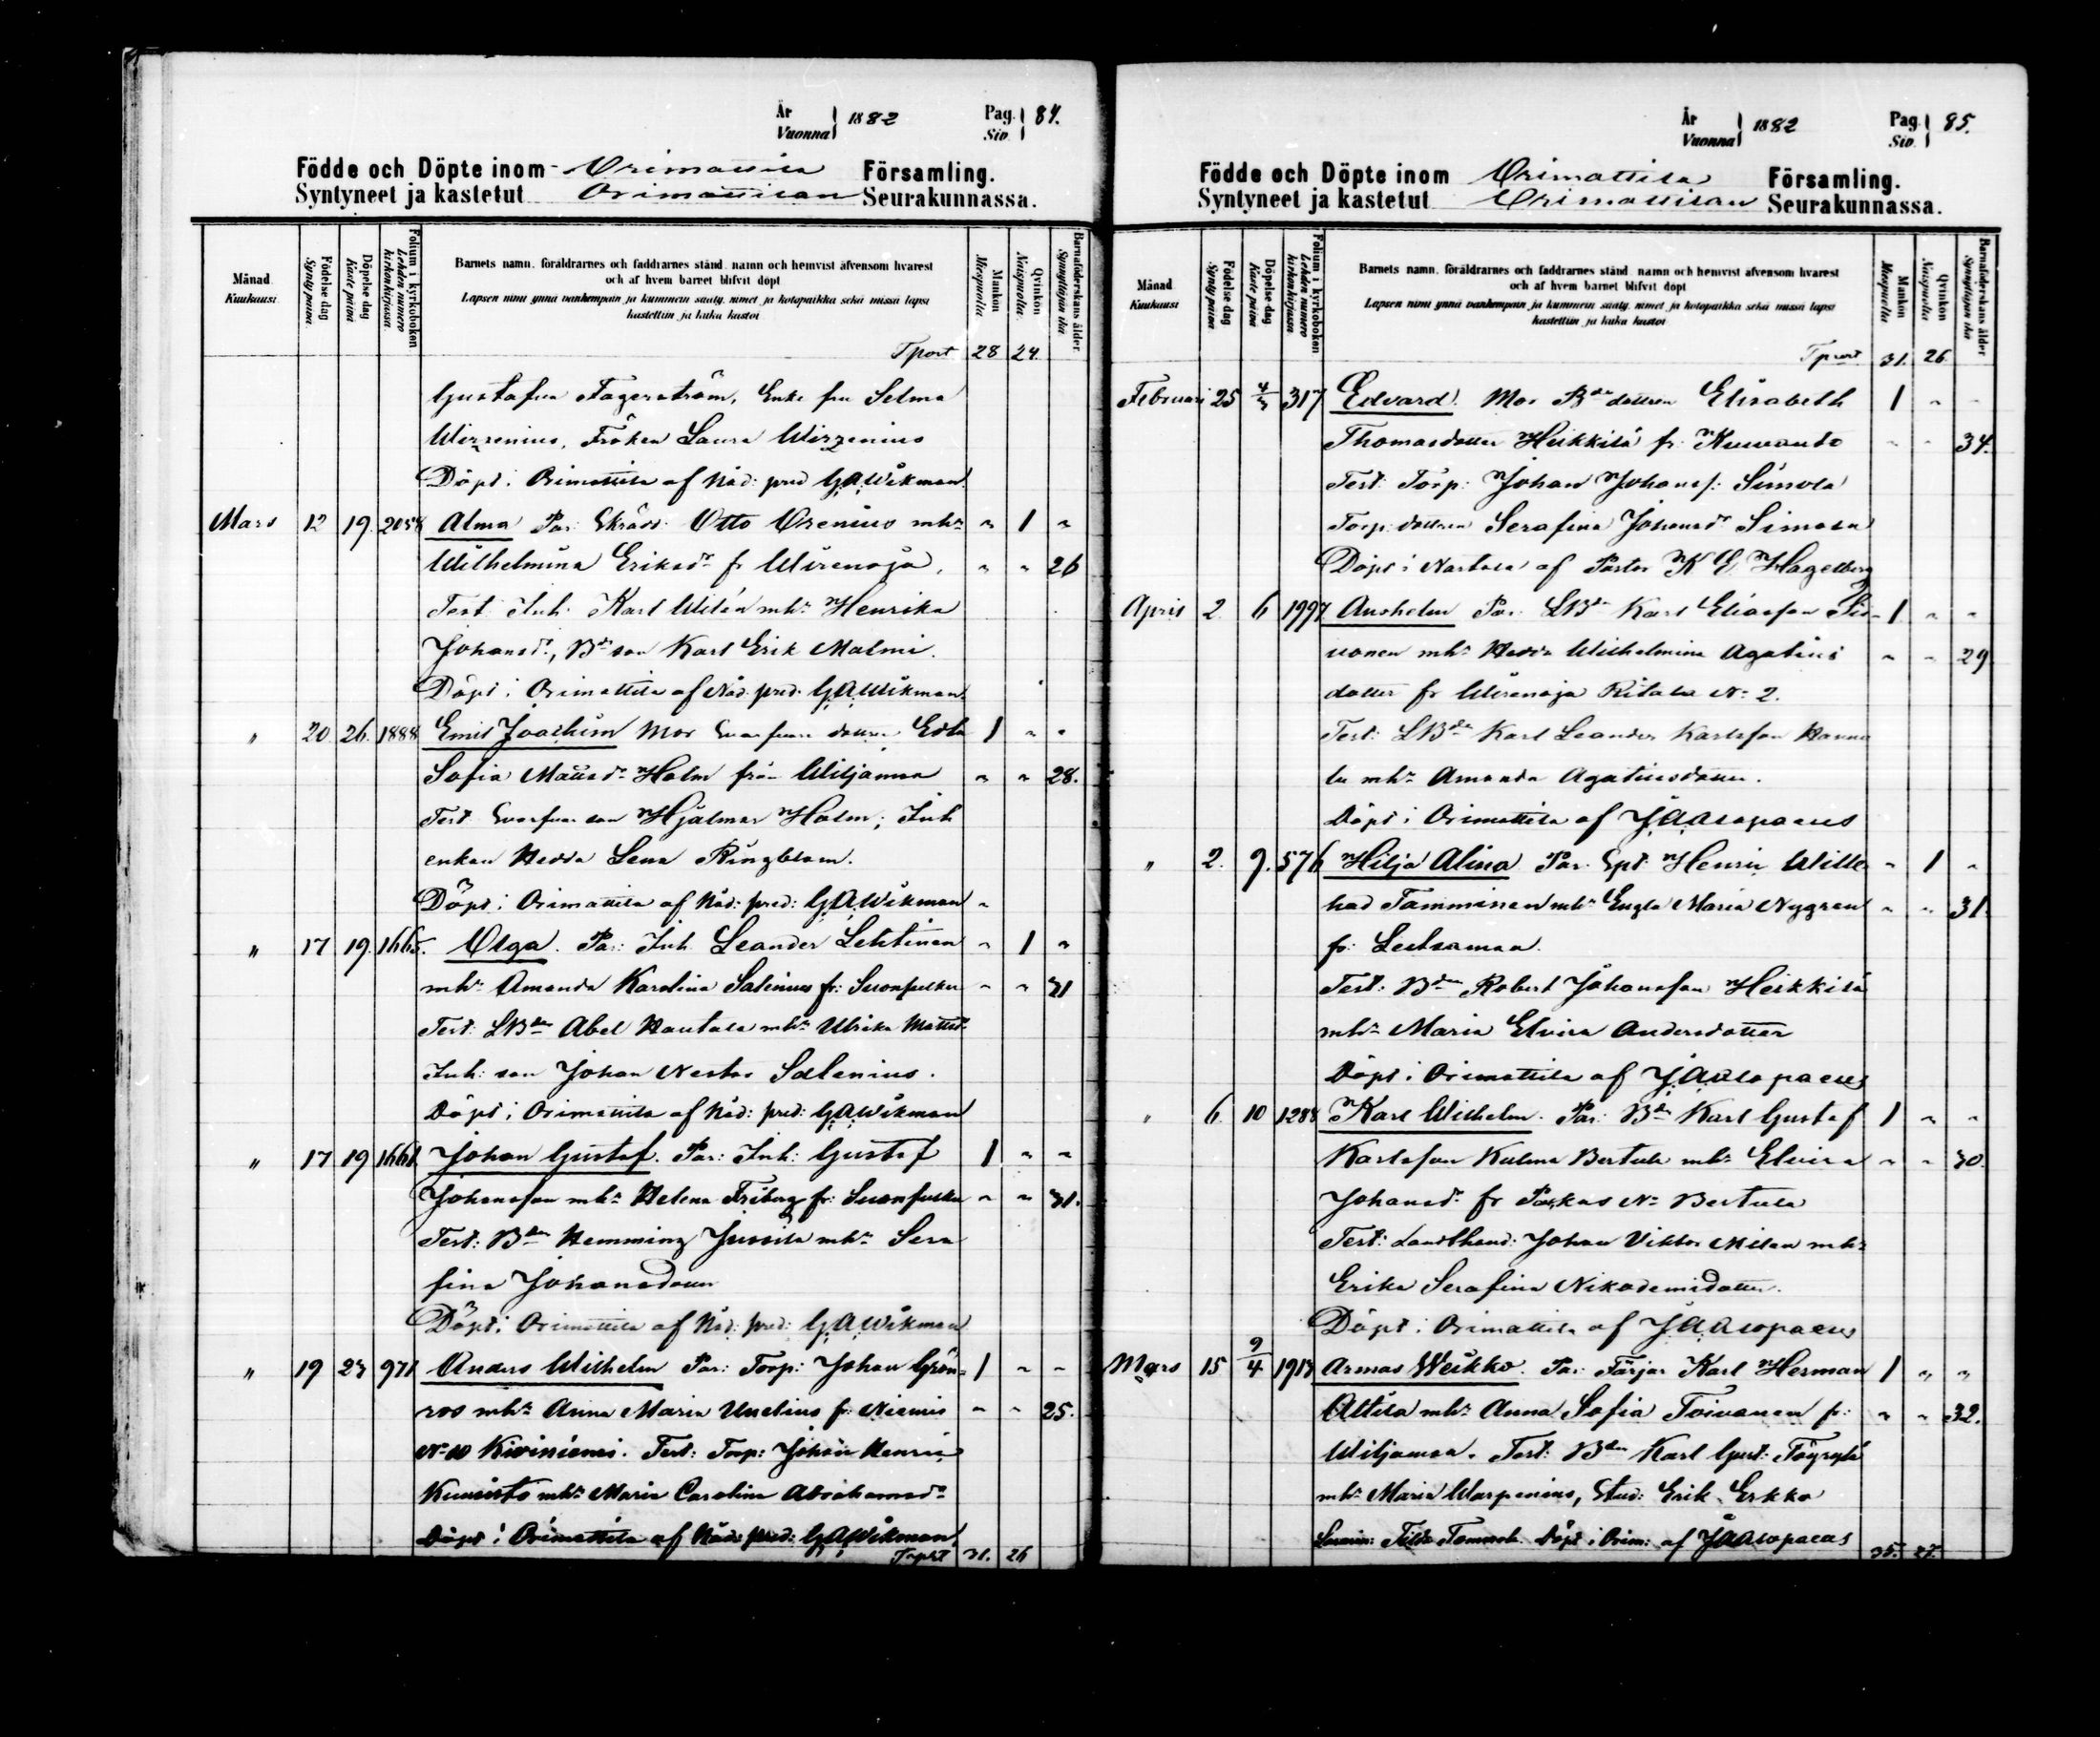 År
Vuonna 1882
Pag.
Siv. 84.
Födde och Döpte inom Orimattila Församling.
Syntyneet ja kastetut Orimattilan Seurakunnassa.
Månad
Kuukausi
Födelse dag
Synty päivä
Döpelse dag
Kaste päivä
Folium i kyrkoboken
Lehden numero
kirkonkirjassa
Barnets namn, föräldrarnes och faddrarnes stånd, namn och hemvist äfvensom hvarest
och af hvem barnet blifvit döpt
Lapsen nimi ynnä vanhempain ja kummein sääty, nimet ja kotopaikka sekä missä lapsi
kastettiin ja kuka kastoi
Mankön
Miespuolia
Qvinkön
Naispuolia
Barnaföderskans ålder
Synnyttäjän ikä
Tport 28 24
Gustafva Fagerström, Enke fru Selma
Wirzenius, Fröken Laura Wirzenius
Döpt i Orimattila af Nåd: pred G.A.Wikman
Mars 12 19. 2058 Alma Par: Skrädd: Otto Orenius mh: " 1 "
Wilhelmina Eriksd: fr Wirenoja, " " 26
Test Inh: Karl Widén mh: Henrika
Johansd:, Bd: son Karl Erik Malmi.
Döpt i Orimattila af Nåd. pred. G.A.Wikman.
" 20 26. 1888 Emil Joachim Mor dottren Edla 1 " "
Sofia Mattsd: Holm från Wiljamaa " " 28.
Test son Hjalmar Holm; Inh
enkan Hedda Lena Ringblom.
Döpt i Orimattila af Nåd: pred: G.A.Wikman "
" 17 19. 1665. Olga. Par: Inh Leander Lehtinen " 1 "
mh: Amanda Karolina Salenius fr: " " 31
Test: LBd: Abel Hautala mh: Ulrika Mattsd:
Inh: son Johan Nestor Salenius.
Döpt i Orimattila af Nåd: pred: G.A.Wikman
" 17 19 1661 Johan Gustaf. Par: Inh: Gustaf 1 " "
Johansson mh: Helena Friberg fr: " " 31.
Test: Bd: Hemming Jussila mh: Sera
fina Johansdotter
Döpt i Orimattila af Nåd: pred: G.A.Wikman
" 19 23 971 Anders Wilhelm Par: Torp: Johan Grön= 1 " "
roos mh: Anna Maria Unelius fr: Niemis " " 25.
N: 10 Kiviniemi. Test: Torp: Johan Henrik
Kuusisto mh: Maria Carolina Abrahamsd:
Döpt i Orimattila af Nåd: pred: G.A.Wikman
Tport 31. 26
År
Vuonna 1882
Pag.
Siv. 85.
Födde och Döpte inom Orimattila Församling.
Syntyneet ja kastetut Orimattilan Seurakunnassa.
Månad
Kuukausi
Födelse dag
Synty päivä
Döpelse dag
Kaste päivä
Folium i kyrkoboken
Lehden numero
kirkonkirjassa
Barnets namn, föräldrarnes och faddrarnes stånd, namn och hemvist äfvensom hvarest
och af hvem barnet blifvit döpt
Lapsen nimi ynnä vanhempain ja kummein sääty, nimet ja kotopaikka sekä missä lapsi
kastettiin ja kuka kastoi
Mankön
Miespuolia
Qvinkön
Naispuolia
Barnaföderskans ålder
Synnyttäjän ikä
Tport 31. 26.
Februari 25 4/3 317 Edvard. Mor Bd: dottren Elisabeth 1 " "
Thomasdotter Heikkilä fr. " " 34.
Test: Torp: Johan Johanss: Simola
Torp: dottren Serafina Johansd: Simola
Döpt i Nastola af Pastor K E Hagelberg
April 2. 6 1997 Anshelm Par: LBd: Karl Eliasson 1. " "
mh: Hedda Wilhelmina Agatius " " 29
dotter fr Wirenoja Ritala N: 2.
Test: LBd: Karl Leander Karlsson Hannu
la mh: Amanda Agatiusdotter.
Döpt i Orimattila af J.A.Asopaeus
" 2. 9. 576 Hilja Alina Par. Henrik Wille " 1 "
had Tamminen mh: Engla Maria Nygren " " 31
fr:
Test: Bd: Robert Johansson Heikkilä
mh: Maria Elvira Andersdotter
Döpt i Orimattila af J.A.Asopaeus
" 6. 10 1288 Karl Wilhelm. Par: Bd: Karl Gustaf 1 " "
Karlsson Kulma Bertula mh: Elvira " " 30.
Johansd: fr Pakas N: Bertula
Test: Landthand: Johan Viktor Milan mh:
Erika Serafina Nikodemidotter.
Döpt i Orimattila af J.A.Asopaeus
Mars 15 9/4 1913 Armas Weikko. Par: Färjar Karl Herman 1 " "
Attila mh: Anna Sofia Toivanen fr: " " 32.
Wiljamaa. Test: Bd: Karl Gust: Fägrylä
mh: Maria Warpenius, Stud: Erik Erkko
Tilda Döpt i Orim: af J.A.Asopaeus
35. 27.